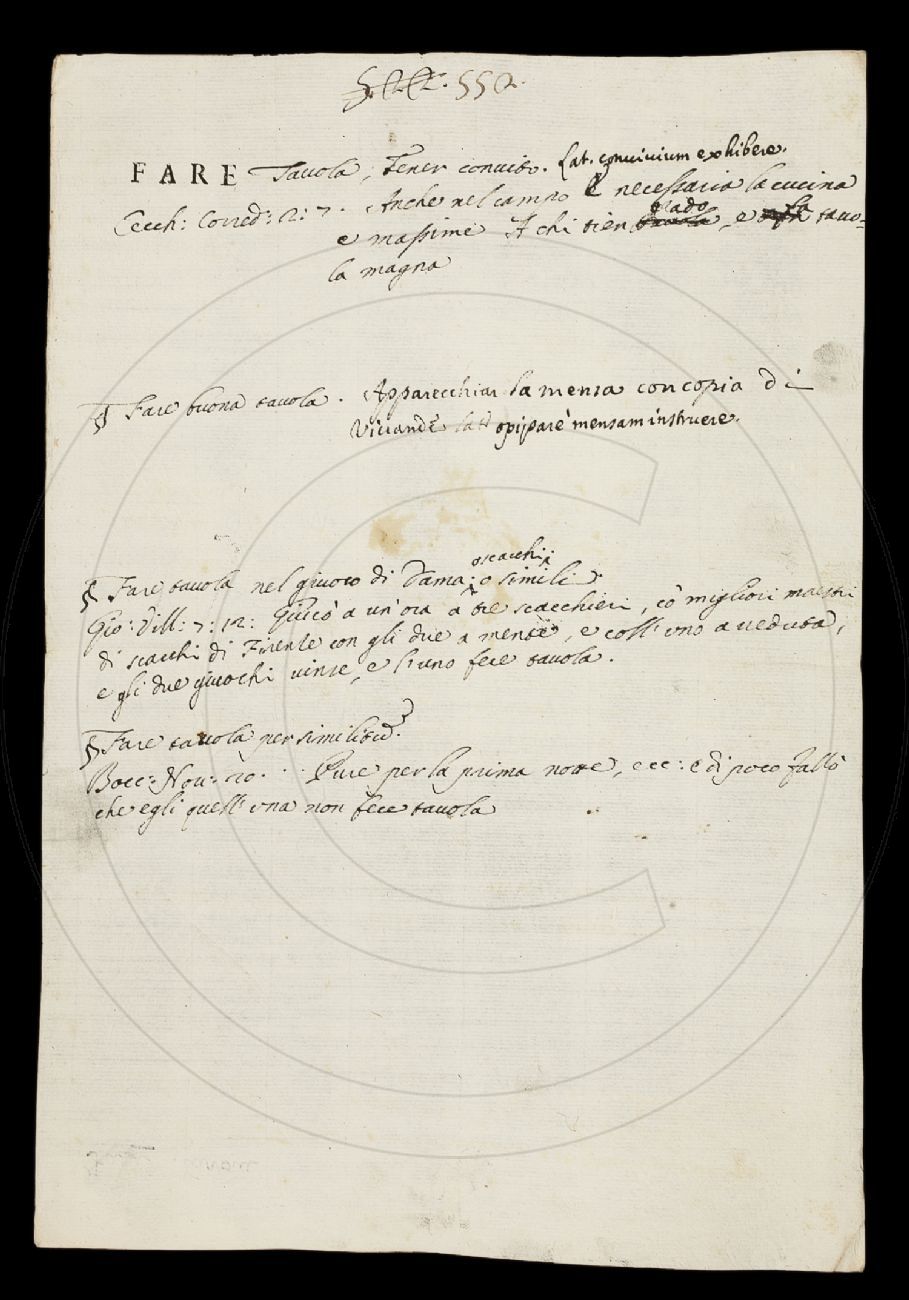 §. CCC. 550.
FARE Tavola, Tener convito. Lat. convivium exhibere.
Cecch: Corred: 2: 7. Anche nel campo è necessaria la cucina
grado fa
e massime A chi tien tavola, e tavo-
la magna
§ Fare buona tavola. Apparecchiar la mensa con copia di
Vivande latt opiparè mensam instruere.
o scacchi;
§ Fare tavola nel giuoco di Dama; o simili.
Gio: Vill: 7: 12: Giucò a un'ora a tre scacchieri, cò migliori maestri
di scacchi di Firenze con gli due a mente, e coll' uno a veduta;
e gli due giuochi vinse, e l'uno fece tavola.
§ Fare tavola per similitud.
Bocc: Nov: 20. Pure per la prima notte, ecc: e di poco fallò
che egli quell' una non fece tavola